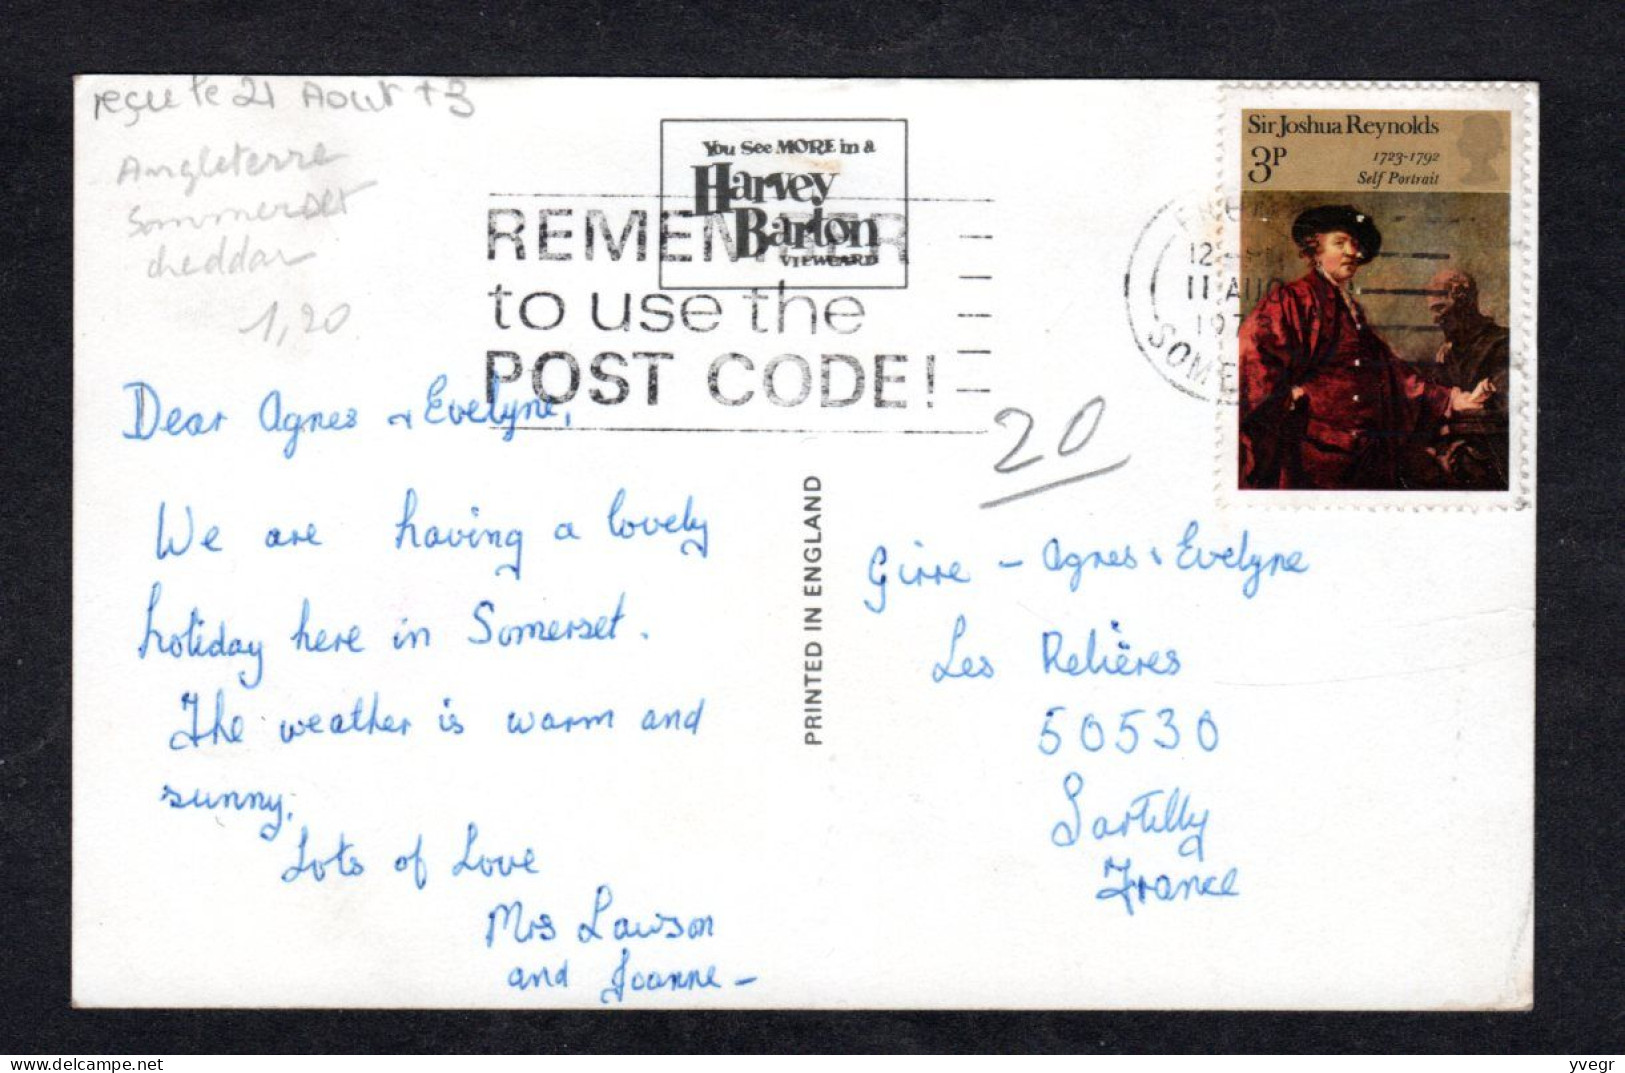 reçu le 21 Aout 73
Angleterre
Sommerset
cheddar
1,20
You See MORE in a
Harvey
Barton
VIEWCARD
REMEMBER
to use the
POST CODE!
12
11 AUG
197
SOME
Sir Joshua Reynolds
3P
1723-1792
Self Portrait
20
Dear Agnes & Evelyne,
We are having a lovely
holiday here in Somerset.
The weather is warm and
sunny.
Lots of Love
Mrs Lawson
and Joanne -
PRINTED IN ENGLAND
Girre - Agnes & Evelyne
Les Relières
50530
Sartilly
France
yvegr